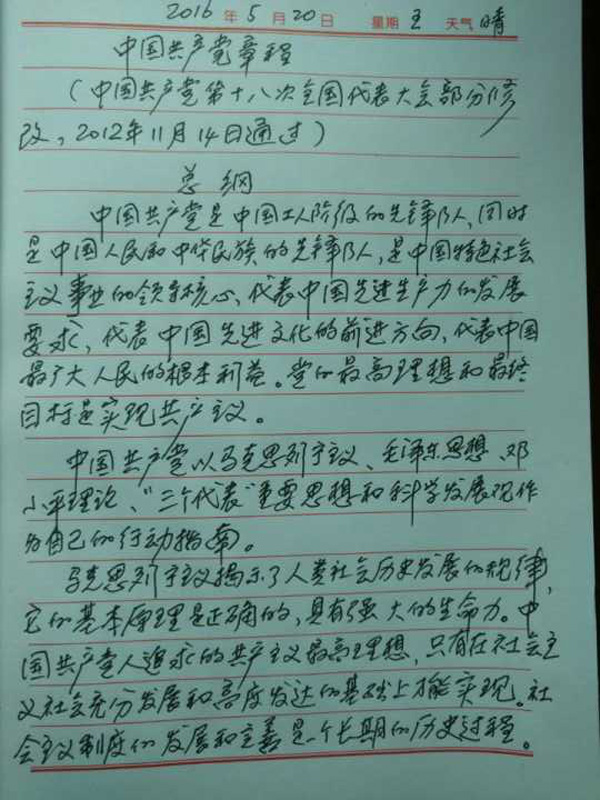 2016年5月20日 星期五 天气晴
中国共产党章程
(中国共产党第十八次全国代表大会部分修
改,2012年11月14日通过)
总纲
中国共产党是中国工人阶级的先锋队,同时
是中国人民和中华民族的先锋队,是中国特色社会
主义事业的领导核心,代表中国先进生产力的发展
要求,代表中国先进文化的前进方向,代表中国
最广大人民的根本利益。党的最高理想和最终
目标是实现共产主义。
中国共产党以马克思列宁主义、毛泽东思想、邓
小平理论、“三个代表”重要思想和科学发展观作
为自己的行动指南。
马克思列宁主义揭示了人类社会历史发展的规律,
它的基本原理是正确的,具有强大的生命力。中
国共产党人追求的共产主义最高理想,只有在社会主
义社会充分发展和高度发达的基础上才能实现。社
会主义制度的发展和完善是一个长期的历史过程。